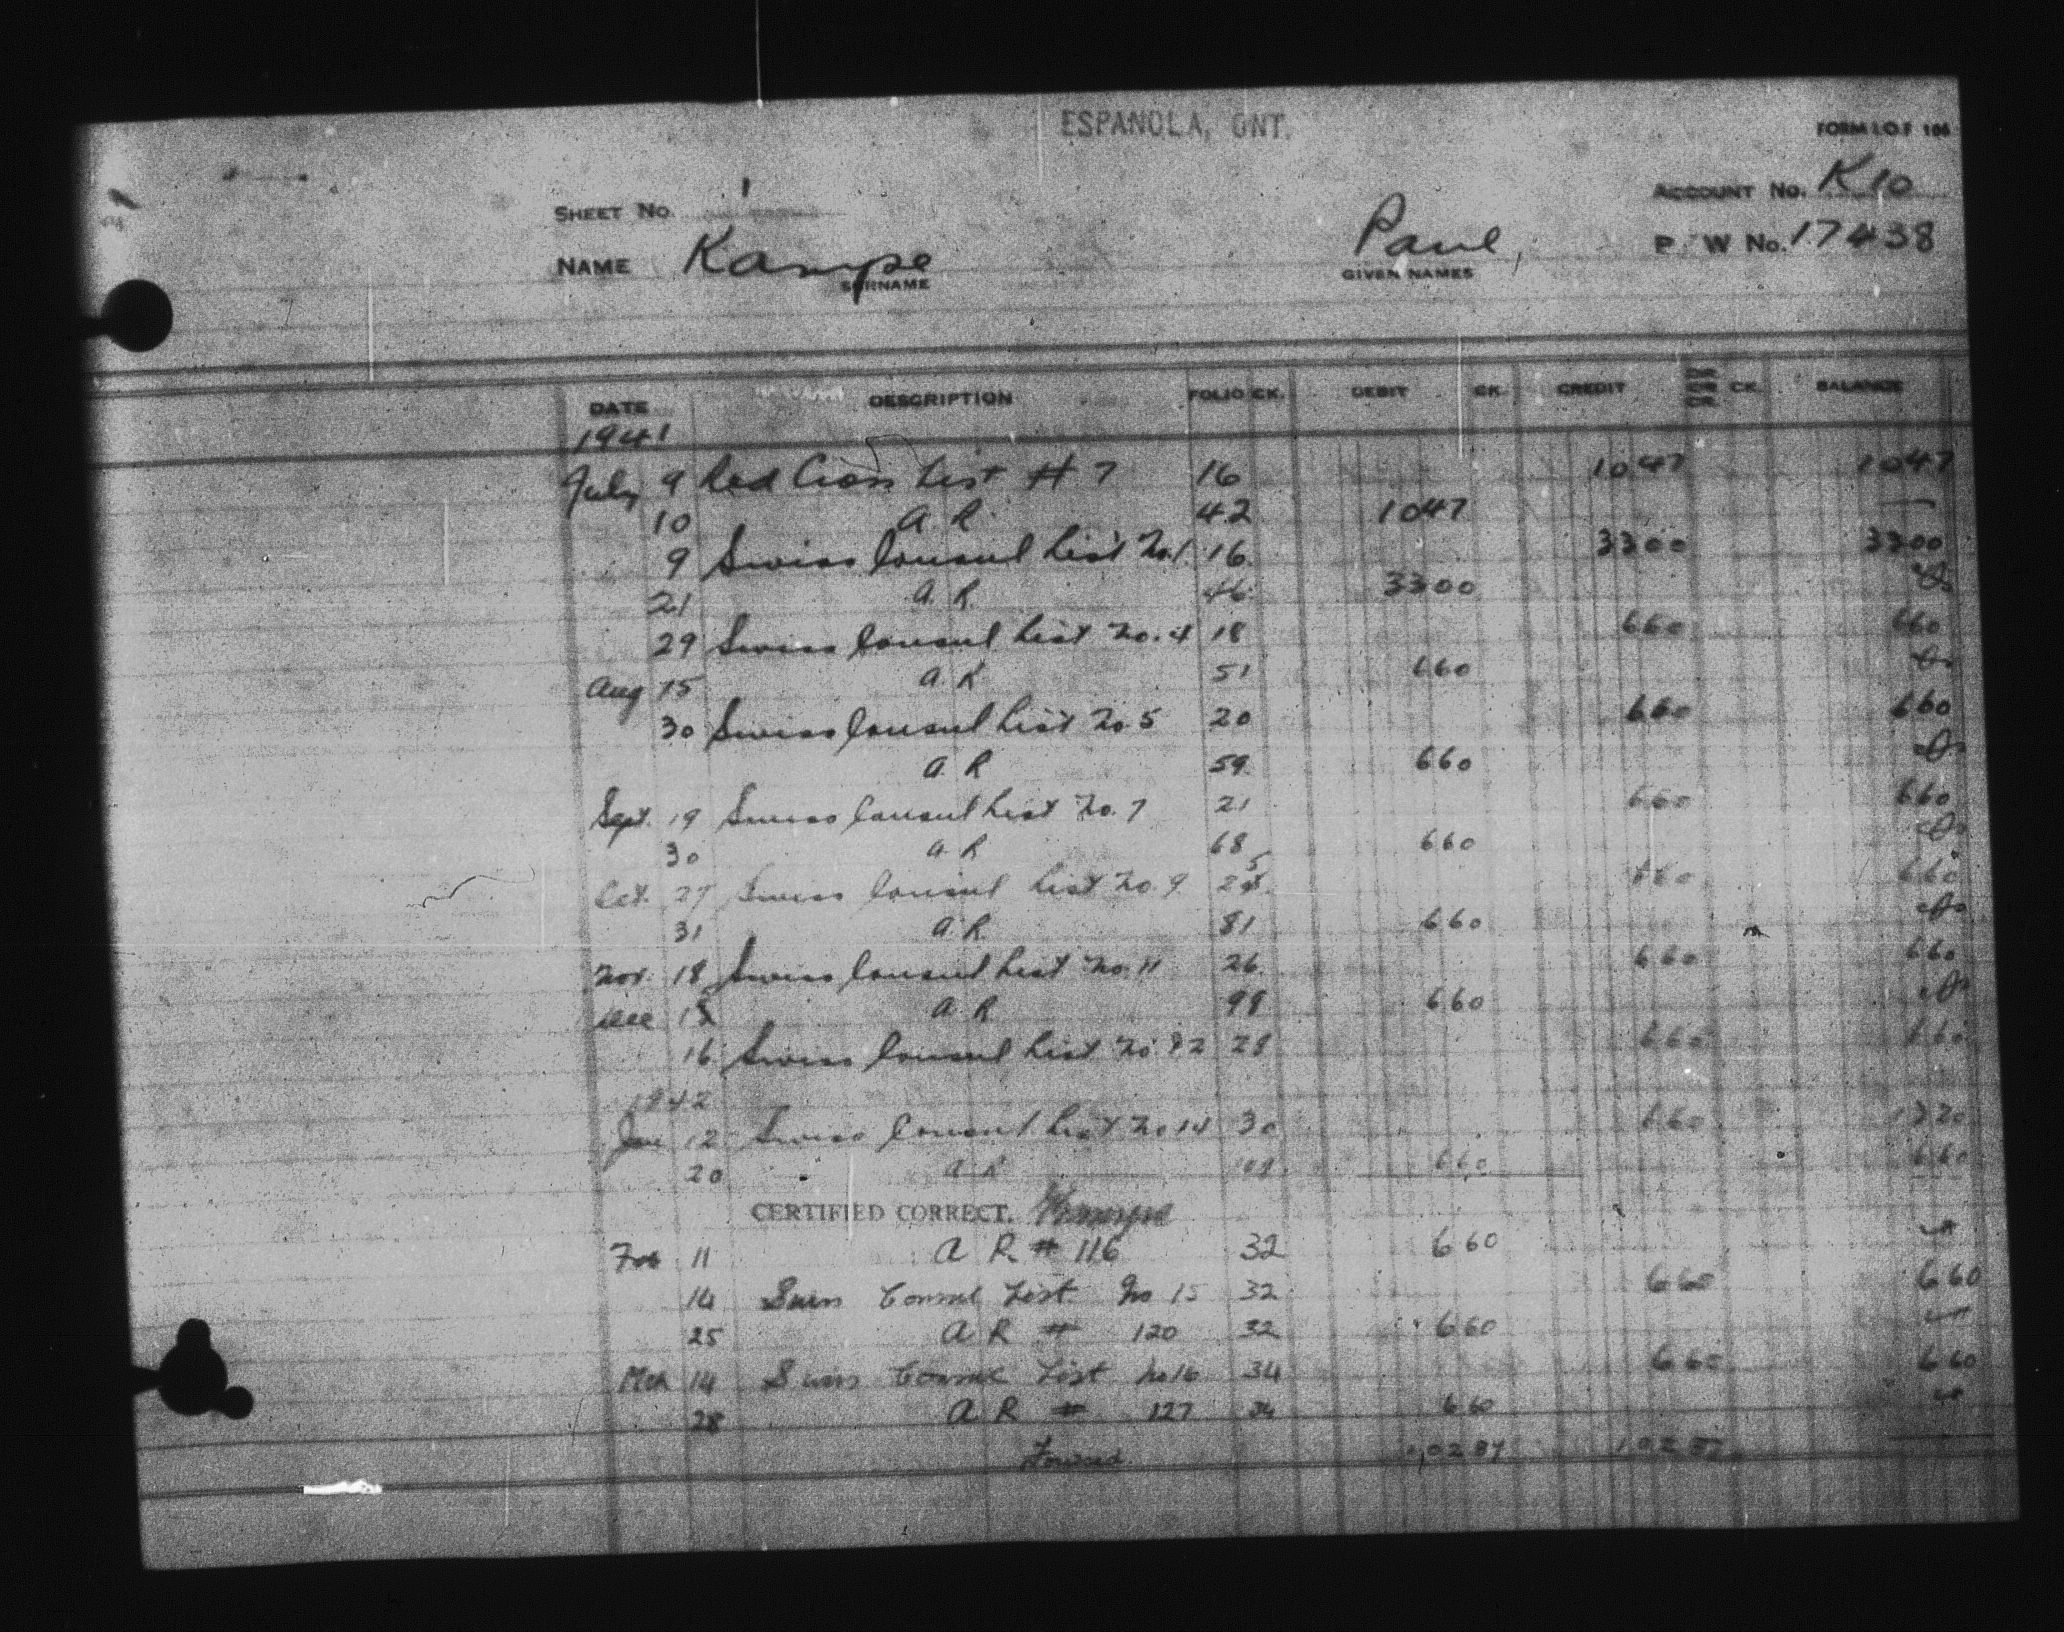 ESPANOLA, ONT.
FORM I.O.F 106
SHEET NO. 1
ACCOUNT NO. K10
NAME Kampe Paul, P/W No. 17438
SURNAME GIVEN NAMES
DATE DESCRIPTION FOLIO CK. DEBIT CK. CREDIT DR. OR CR. CK. BALANCE
1941
July 9 Red Cross List # 7 16 1047 1047
10 A R 42 1047 —
9 Swiss Consul List No. 1 16 3300 3300
21 A. R. 46 3300
29 Swiss Consul List No. 4 18 660 660
Aug 15 A R 51 660
30 Swiss Consul List No 5 20 660 660
A R 59 660
Sept. 19 Swiss Consul List No. 7 21 660 660
30 A R 68 660
Oct. 27 Swiss Consul List No. 9 25 660 660
31 A R 81 660
Nov. 18 Swiss Consul List No. 11 26 660 660
Dec A R 98 660
16 Swiss Consul List No 28 660 660
1942
Jan 12 Swiss Consul List No 14 30 660 1320
20 A R 660 660
CERTIFIED CORRECT. Kampe
Feb 11 A R # 116 32 660
14 Swiss Consul List No 15 32 660 660
25 A R # 120 32 660
Mch 14 Swiss Consul List No 16 34 660 660
28 A R # 127 34 660
Forward 102 87 102 87